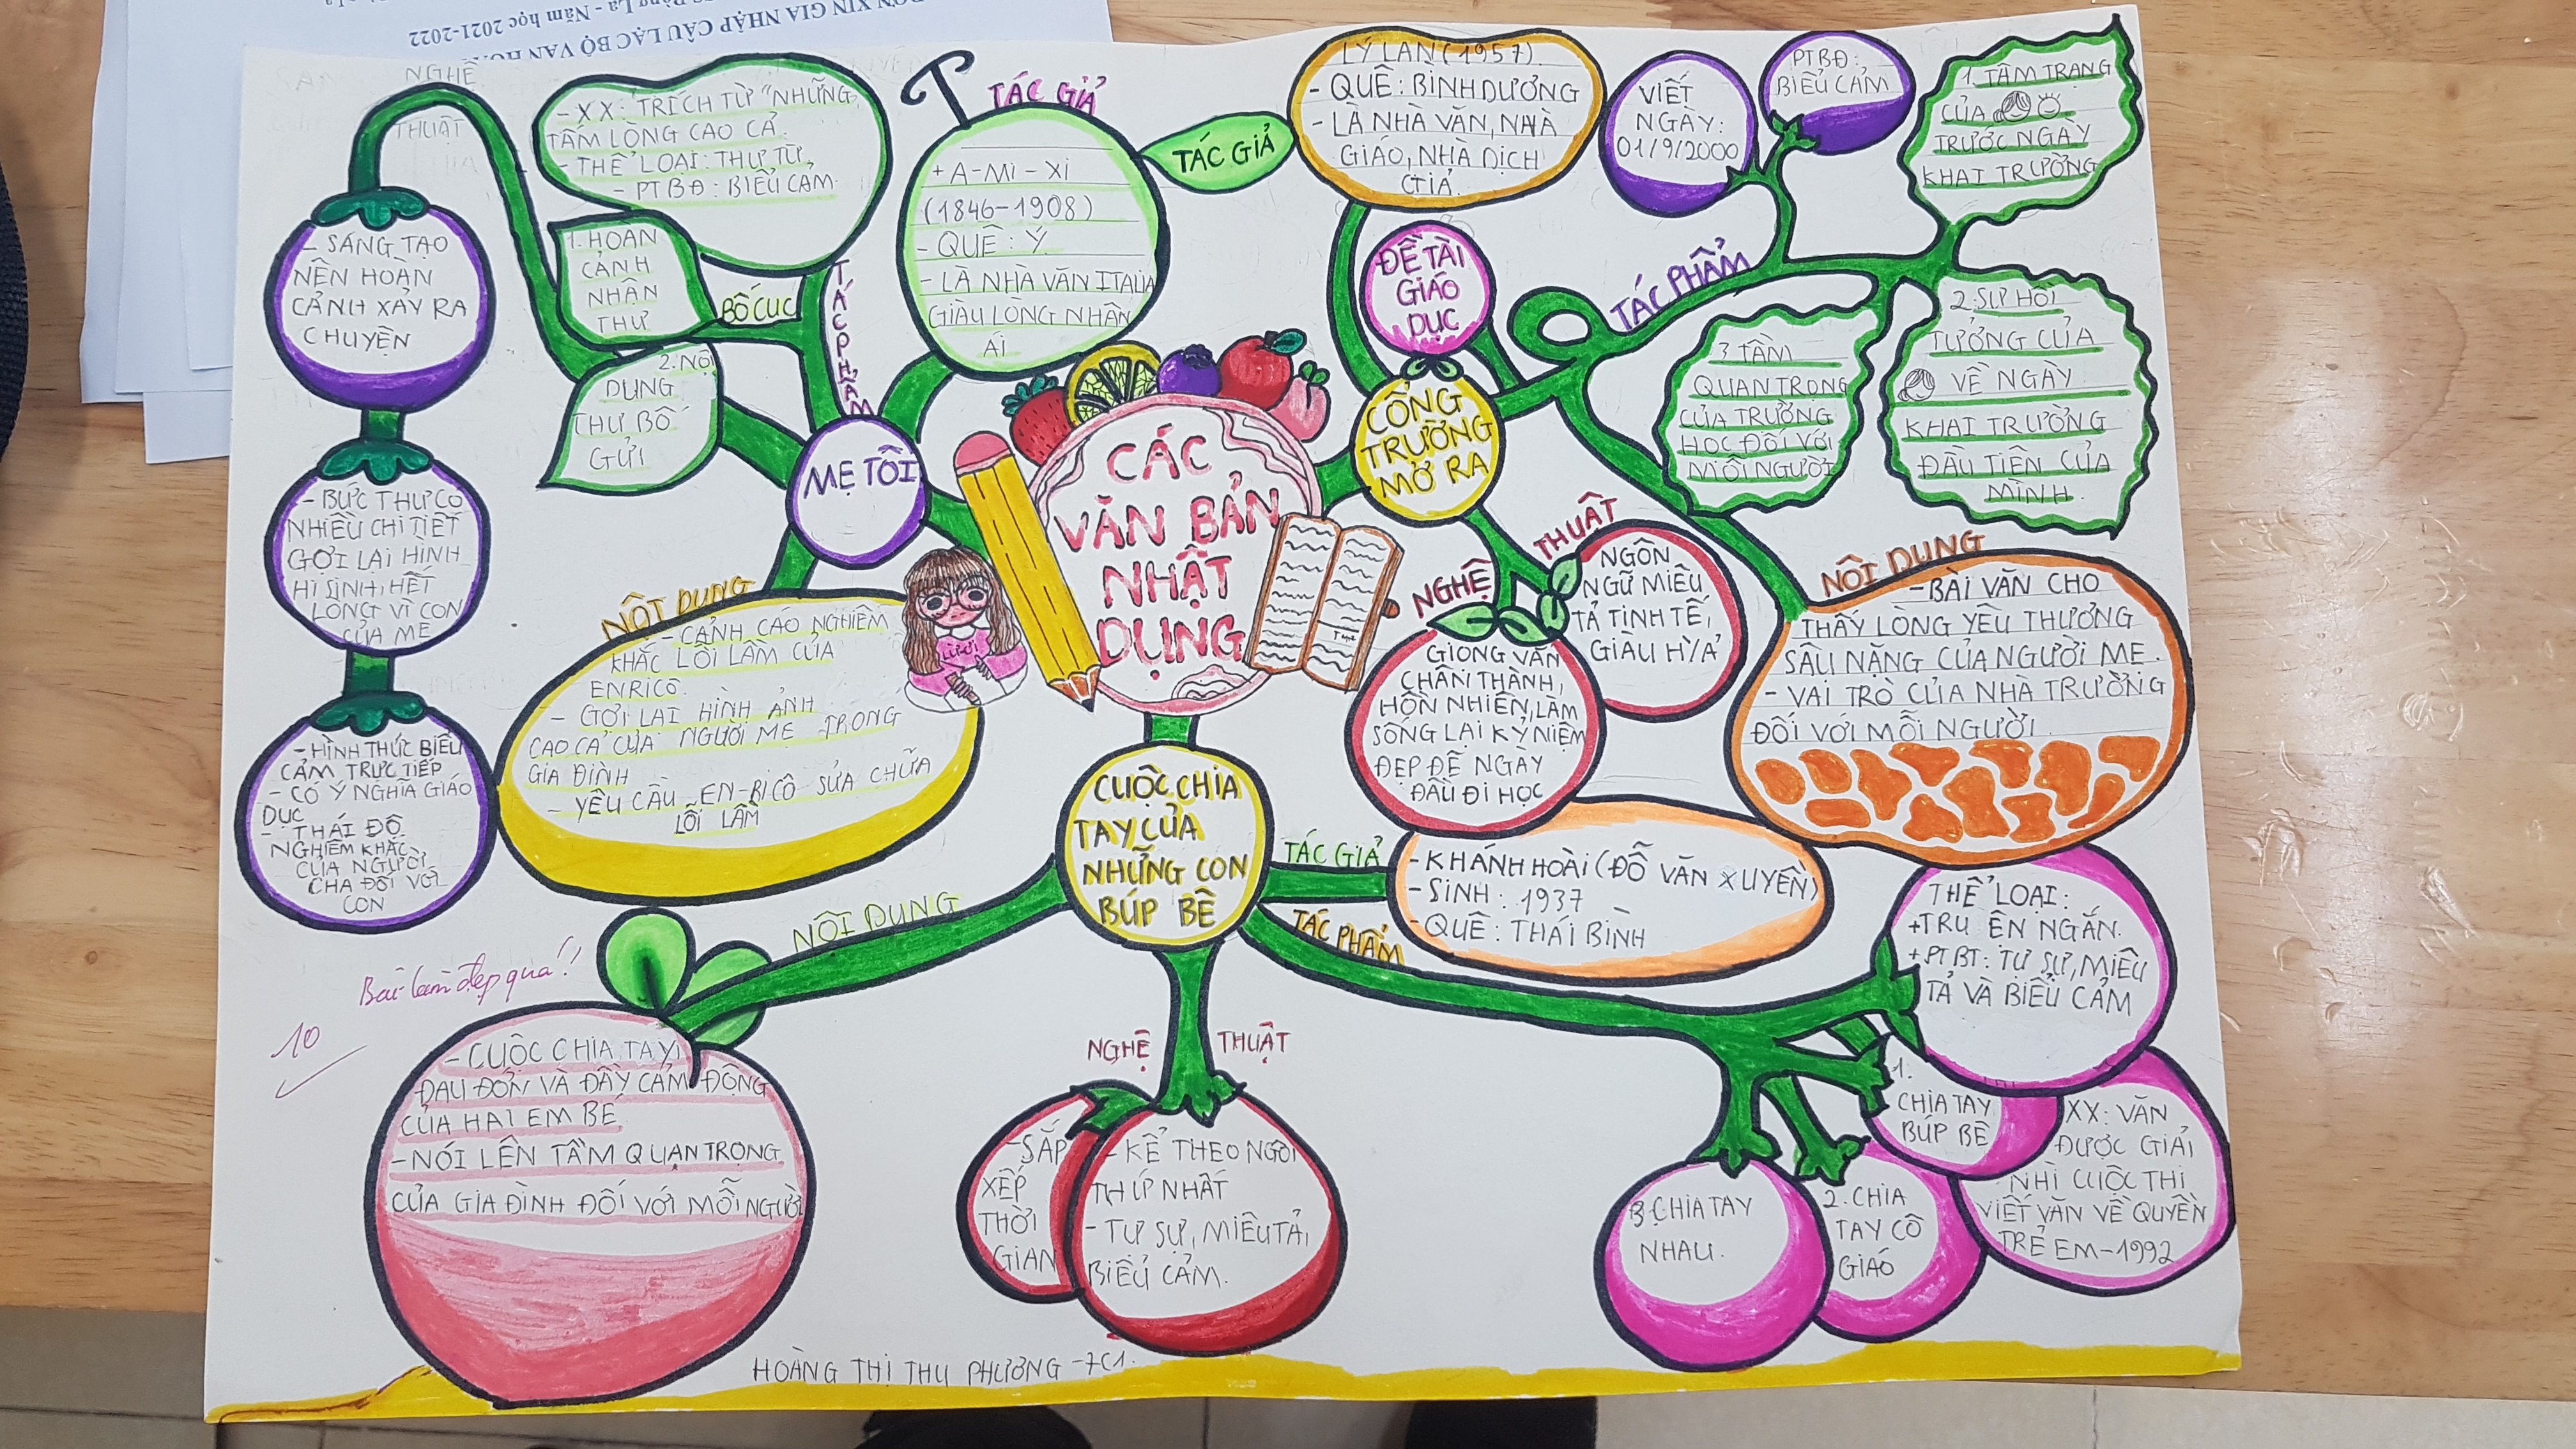 ĐƠN XIN GIA NHẬP CÂU LẠC BỘ VĂN
- Năm học 2021-2022
CÁC
VĂN BẢN
NHẬT
DỤNG
MẸ TÔI
TÁC GIẢ
+ A-MI-XI
(1846-1908)
- QUÊ: Ý
- LÀ NHÀ VĂN ITALIA
GIÀU LÒNG NHÂN
ÁI
TÁC PHẨM
- XX: TRÍCH TỪ "NHỮNG
TẤM LÒNG CAO CẢ
- THỂ LOẠI: THƯ TỪ
- PTBĐ: BIỂU CẢM.
BỐ CỤC
1. HOÀN
CẢNH
NHẬN
THƯ
2. NỘI
DUNG
THƯ BỐ
GỬI
NGHỆ
THUẬT
- SÁNG TẠO
NÊN HOÀN
CẢNH XẢY RA
CHUYỆN
- BỨC THƯ CÓ
NHIỀU CHI TIẾT
GỢI LẠI HÌNH
HI SINH, HẾT
LÒNG VÌ CON
CỦA MẸ
- HÌNH THỨC BIỂU
CẢM TRỰC TIẾP
- CÓ Ý NGHĨA GIÁO
DỤC
- THÁI ĐỘ
NGHIÊM KHẮC
CỦA NGƯỜI
CHA ĐỐI VỚI
CON
NỘI DUNG
- CẢNH CÁO NGHIÊM
KHẮC LỖI LẦM CỦA
ENRICÔ.
- GỢI LẠI HÌNH ẢNH
CAO CẢ CỦA NGƯỜI MẸ TRONG
GIA ĐÌNH
- YÊU CẦU EN-RICÔ SỬA CHỮA
LỖI LẦM
CỔNG
TRƯỜNG
MỞ RA
TÁC GIẢ
LÝ LAN (1957)
- QUÊ: BÌNH DƯƠNG
- LÀ NHÀ VĂN, NHÀ
GIÁO, NHÀ DỊCH
GIẢ.
ĐỀ TÀI
GIÁO
DỤC
TÁC PHẨM
VIẾT
NGÀY:
01/9/2000
PTBĐ:
BIỂU CẢM
1. TÂM TRẠNG
CỦA
TRƯỚC NGÀY
KHAI TRƯỜNG
2. SỰ HỒI
TƯỞNG CỦA
VỀ NGÀY
KHAI TRƯỜNG
ĐẦU TIÊN CỦA
MÌNH.
3 TẦM
QUAN TRỌNG
CỦA TRƯỜNG
HỌC ĐỐI VỚI
MỖI NGƯỜI
NGHỆ THUẬT
NGÔN
NGỮ MIÊU
TẢ TINH TẾ,
GIÀU H/Ả
GIỌNG VĂN
CHÂN THÀNH,
HỒN NHIÊN, LÀM
SỐNG LẠI KỶ NIỆM
ĐẸP ĐẼ NGÀY
ĐẦU ĐI HỌC
NỘI DUNG
- BÀI VĂN CHO
THẤY LÒNG YÊU THƯƠNG
SÂU NẶNG CỦA NGƯỜI MẸ.
- VAI TRÒ CỦA NHÀ TRƯỜNG
ĐỐI VỚI MỖI NGƯỜI
CUỘC CHIA
TAY CỦA
NHỮNG CON
BÚP BÊ
TÁC GIẢ
- KHÁNH HOÀI (ĐỖ VĂN XUYỀN)
- SINH: 1937
- QUÊ: THÁI BÌNH
TÁC PHẨM
THỂ LOẠI:
+TRU ÊN NGẮN.
+PTBT: TỰ SỰ, MIÊU
TẢ VÀ BIỂU CẢM
XX: VĂN
ĐƯỢC GIẢI
NHÌ CUỘC THI
VIẾT VĂN VỀ QUYỀN
TRẺ EM-1992
1.
CHIA TAY
BÚP BÊ
2. CHIA
TAY CÔ
GIÁO
3. CHIA TAY
NHAU.
NGHỆ THUẬT
- SẮP
XẾP
THỜI
GIAN
- KỂ THEO NGÔI
THỨ NHẤT
- TỰ SỰ, MIÊU TẢ,
BIỂU CẢM.
NỘI DUNG
- CUỘC CHIA TAY
ĐAU ĐỚN VÀ ĐẦY CẢM ĐỘNG
CỦA HAI EM BÉ
- NÓI LÊN TẦM QUAN TRỌNG
CỦA GIA ĐÌNH ĐỐI VỚI MỖI NGƯỜI
Bài làm đẹp quá!!
10
HOÀNG THỊ THU PHƯƠNG - 7C1.